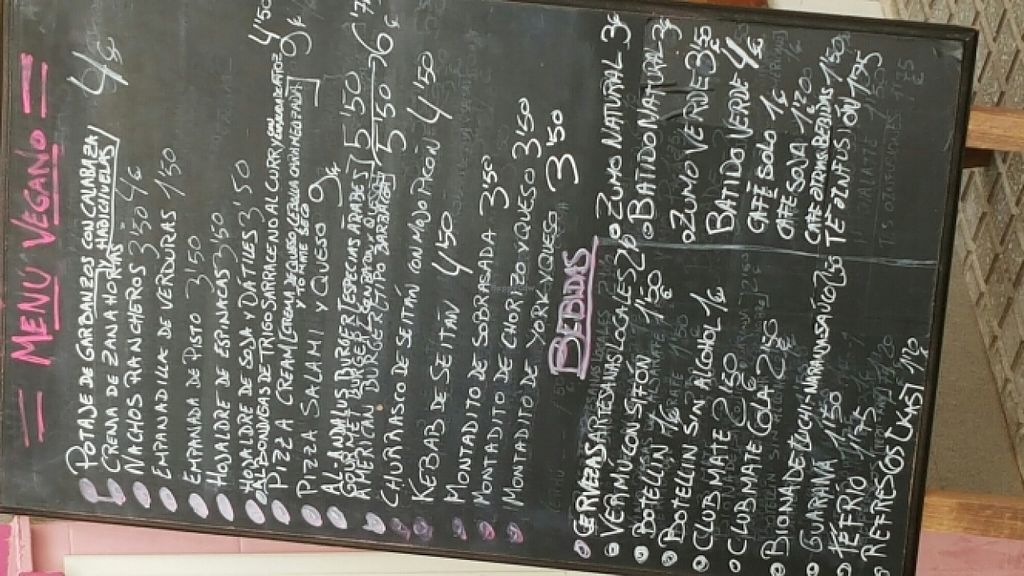 MENU VEGANO
POTAJE DE GARBANZOS CON CALABAZA Y HABICHUELAS 4€
CREMA DE ZANAHORIAS
NACHOS RANCHEROS 3'50 4€
EMPANADILLA DE VERDURAS 1'50
EMPANADA DE PISTO 3'50
HOJALDRE DE ESPINACAS 3'50
HOJALDRE DE SOJA Y DATILES 3'50
ALBONDIGAS DE TRIGO SARRACENO AL CURRY 4'50
PIZZA CREAM [CREMA DE QUESO, CEBOLLA CARAMELIZADA Y TOMATE SECO] 9€
PIZZA SALAMI Y QUESO 9€
AL ANDALUS [ESPECIAS ARABES] 5'50
GOURMET BURGER
AMERICAN BURGER 5'50 6€
CHURRASCO DE SEITÁN CON MOJO PICÓN 4'50
KEBAB DE SEITAN 4'50
MONTADITO DE SOBRASADA 3'50
MONTADITO DE CHORIZO Y QUESO 3'50
MONTADITO DE YORK Y QUESO 3'50
BEBIDAS
CERVEZAS ARTESANAS LOCALES
VERMU CON SIFON 1'50
BOTELLIN 1€
BOTELLIN SIN ALCOHOL 1€
CLUB MATE 2'50
CLUB MATE COLA 2'50
BIONA DE LICHI-NARANJA SANGUINA
GUARANA 1'50
TÉ FRIO
REFRESCOS
ZUMO NATURAL 3€
BATIDO NATURAL 3€
ZUMO VERDE 3'50
BATIDO VERDE 4€
CAFÉ SOLO 1€
CAFÉ SOJA
CAFÉ OTRAS BEBIDAS 1'50
TE O INFUSION